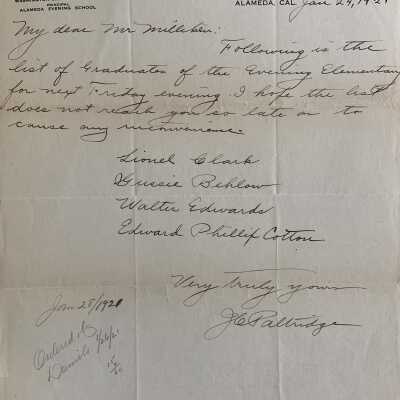 PRINCIPAL
ALAMEDA EVENING SCHOOL
ALAMEDA, CAL Jan 24, 1921
My dear Mr Milliken:
Following is the
list of Graduates of the Evening Elementary
for next Friday evening. I hope the list
does not reach you so late as to
cause any inconvenience.
Lionel Clark
Gussie Behlow
Walter Edwards
Edward Phillip Cotton
Very truly yours
J C Paltridge
Jan 25/1921
Ordered of
Daniels 1/26/21